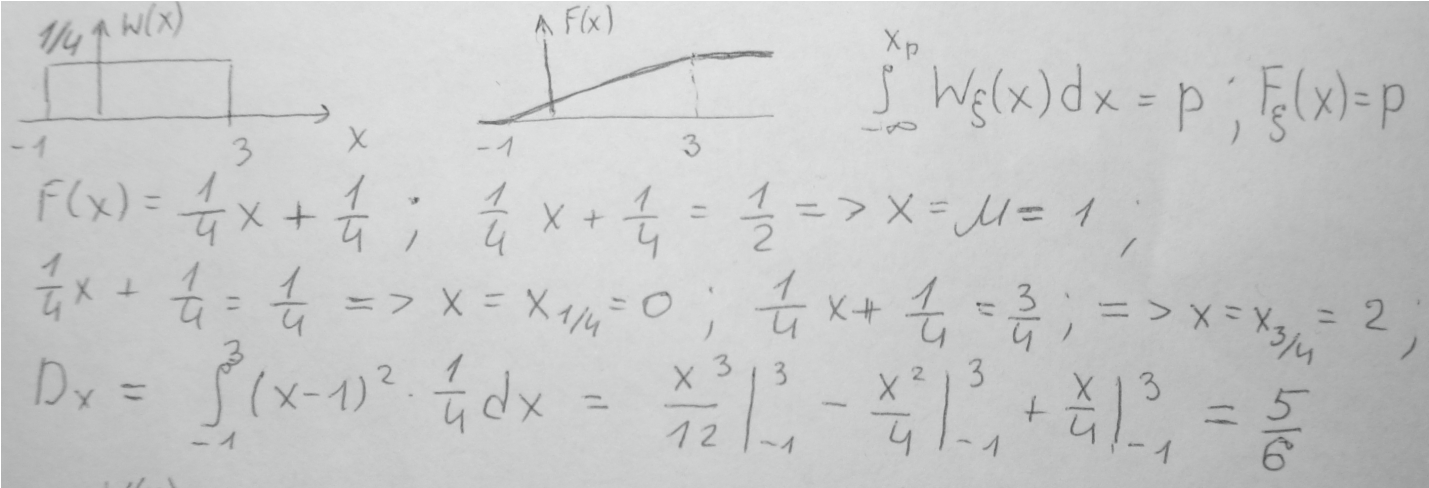 1/4 W(x) F(x)
-1 3 x -1 3 ∫_{-∞}^{x_p} W_ξ(x)dx = p ; F_ξ(x)=p
F(x) = 1/4 x + 1/4 ; 1/4 x + 1/4 = 1/2 => x = μ = 1 ;
1/4 x + 1/4 = 1/4 => x = x_{1/4} = 0 ; 1/4 x + 1/4 = 3/4 ; => x = x_{3/4} = 2 ;
D_x = ∫_{-1}^{3} (x-1)² · 1/4 dx = x³/12 |_{-1}^{3} - x²/4 |_{-1}^{3} + x/4 |_{-1}^{3} = 5/6